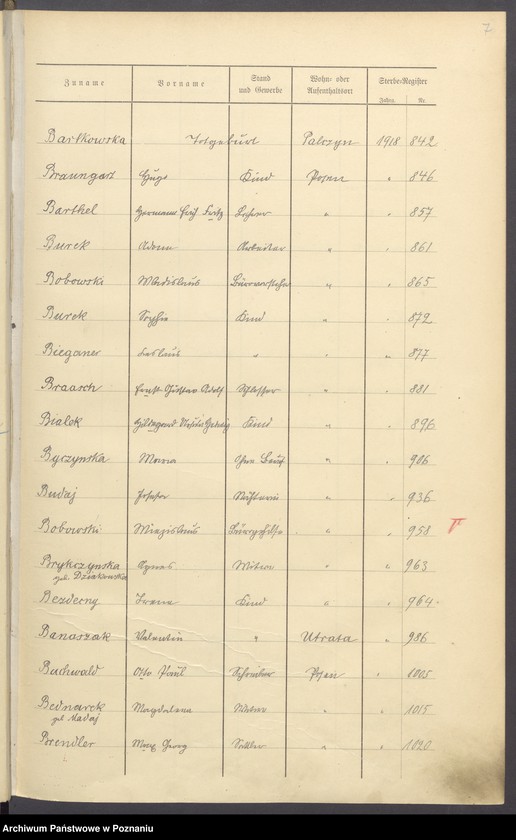 7
Zuname Vorname Stand und Gewerbe Wohn- oder Aufenthaltsort Sterbe-Register
Jahrg. Nr.
Bartkowska Totgeburt Palczyn 1918 842
Braungart Hugo Kind Posen " 846
Barthel Hermann Fritz " " 857
Burek Adam Arbeiter " " 861
Bobowski Wladislaus " " 865
Burek Sophie Kind " " 872
Bieganer Ladislaus " " " 877
Braasch Ernst Gustav Adolf Schlosser " " 881
Bialek Hildegard Hedwig Kind " " 896
Byczynska Maria Ohne Beruf " " 906
Budaj Josefa " " 936
Bobowski Miezislaus " " 958
Brykczynska Agnes Witwe " " 963
geb. Dziakowska
Bezderny Irene Kind " " 964
Banaszak Valentin " Utrata " 986
Buchwald Otto Paul Schreiber Posen " 1005
Bednarek Magdalena Witwe " " 1015
geb. Nadaj
Brendler Max Georg Sattler " " 1020
Archiwum Państwowe w Poznaniu